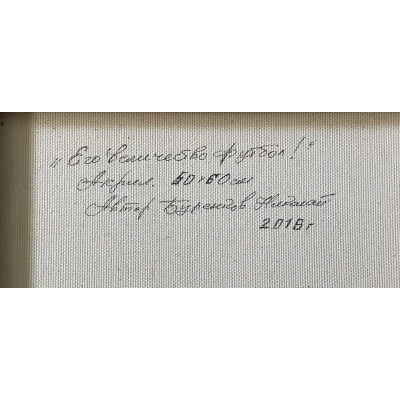 „Его величество футбол!"
Акрил. 50×60см
Автор Буренков Николай
2018г